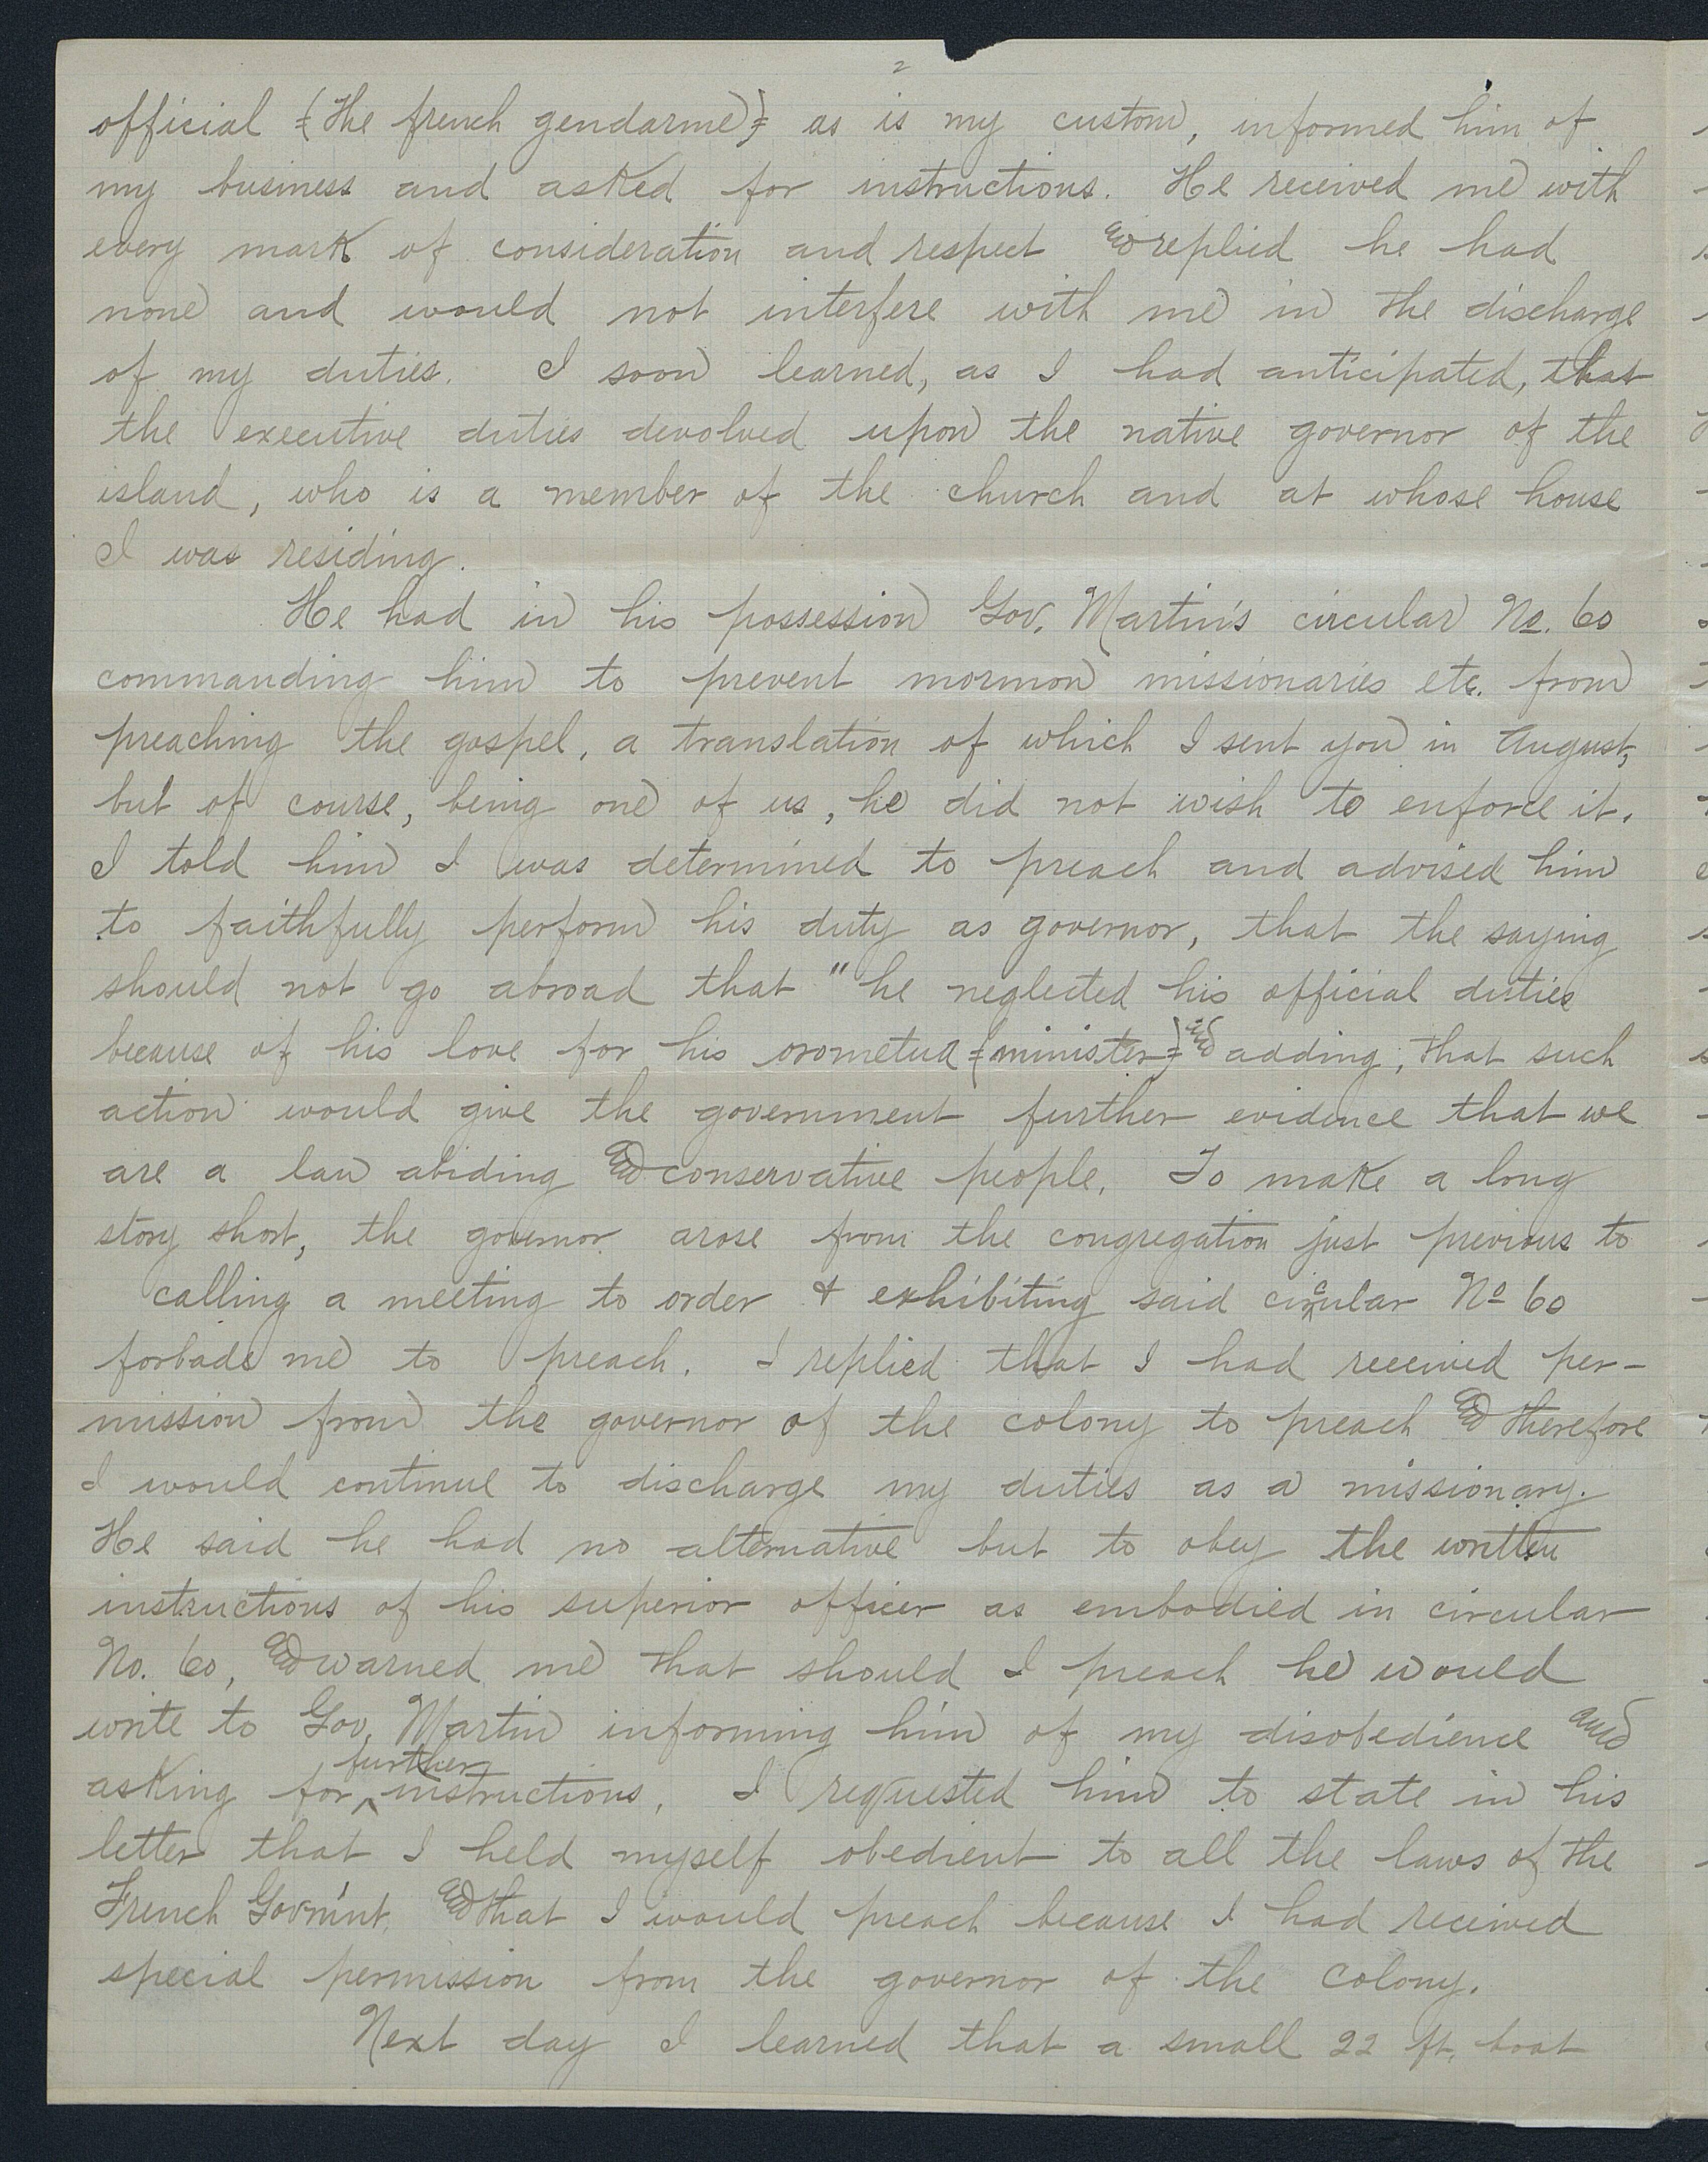 2
official (the french gendarme) as is my custom, informed him of
my business and asked for instructions. He received me with
every mark of consideration and respect and replied he had
none and would not interfere with me in the discharge
of my duties. I soon learned, as I had anticipated, that
the executive duties devolved upon the native governor of the
island, who is a member of the church and at whose house
I was residing.
He had in his possession Gov. Martin's circular No. 60
commanding him to prevent mormon missionaries etc. from
preaching the gospel, a translation of which I sent you in August,
but of course, being one of us, he did not wish to enforce it.
I told him I was determined to preach and advised him
to faithfully perform his duty as governor, that the saying
should not go abroad that "he neglected his official duties
because of his love for his orometua (minister)" and adding, that such
action would give the government further evidence that we
are a law abiding and conservative people. To make a long
story short, the governor arose from the congregation just previous to
calling a meeting to order & exhibiting said circular No 60
forbade me to preach. I replied that I had received per-
mission from the governor of the colony to preach and therefore
I would continue to discharge my duties as a missionary.
He said he had no alternative but to obey the written
instructions of his superior officer as embodied in circular
No. 60, and warned me that should I preach he would
write to Gov. Martin informing him of my disobedience and
asking for further instructions. I requested him to state in his
letter that I held myself obedient to all the laws of the
French Govm'nt, and that I would preach because I had received
special permission from the governor of the colony.
Next day I learned that a small 22 ft. boat